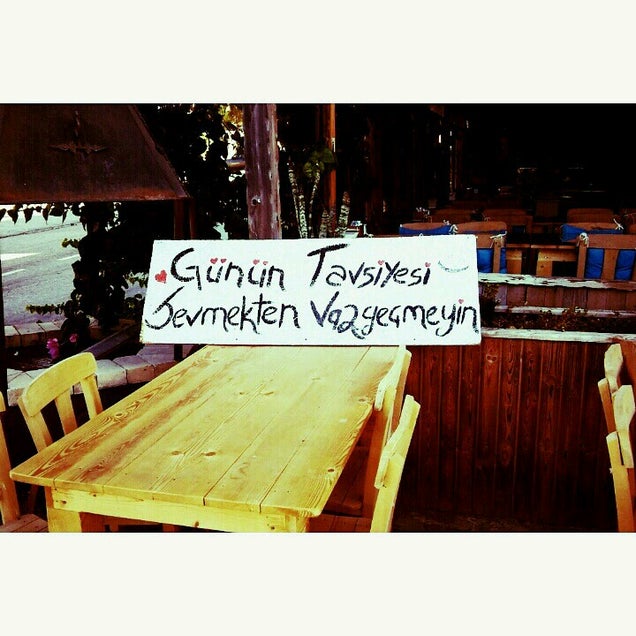 Günün Tavsiyesi
Sevmekten Vazgeçmeyin